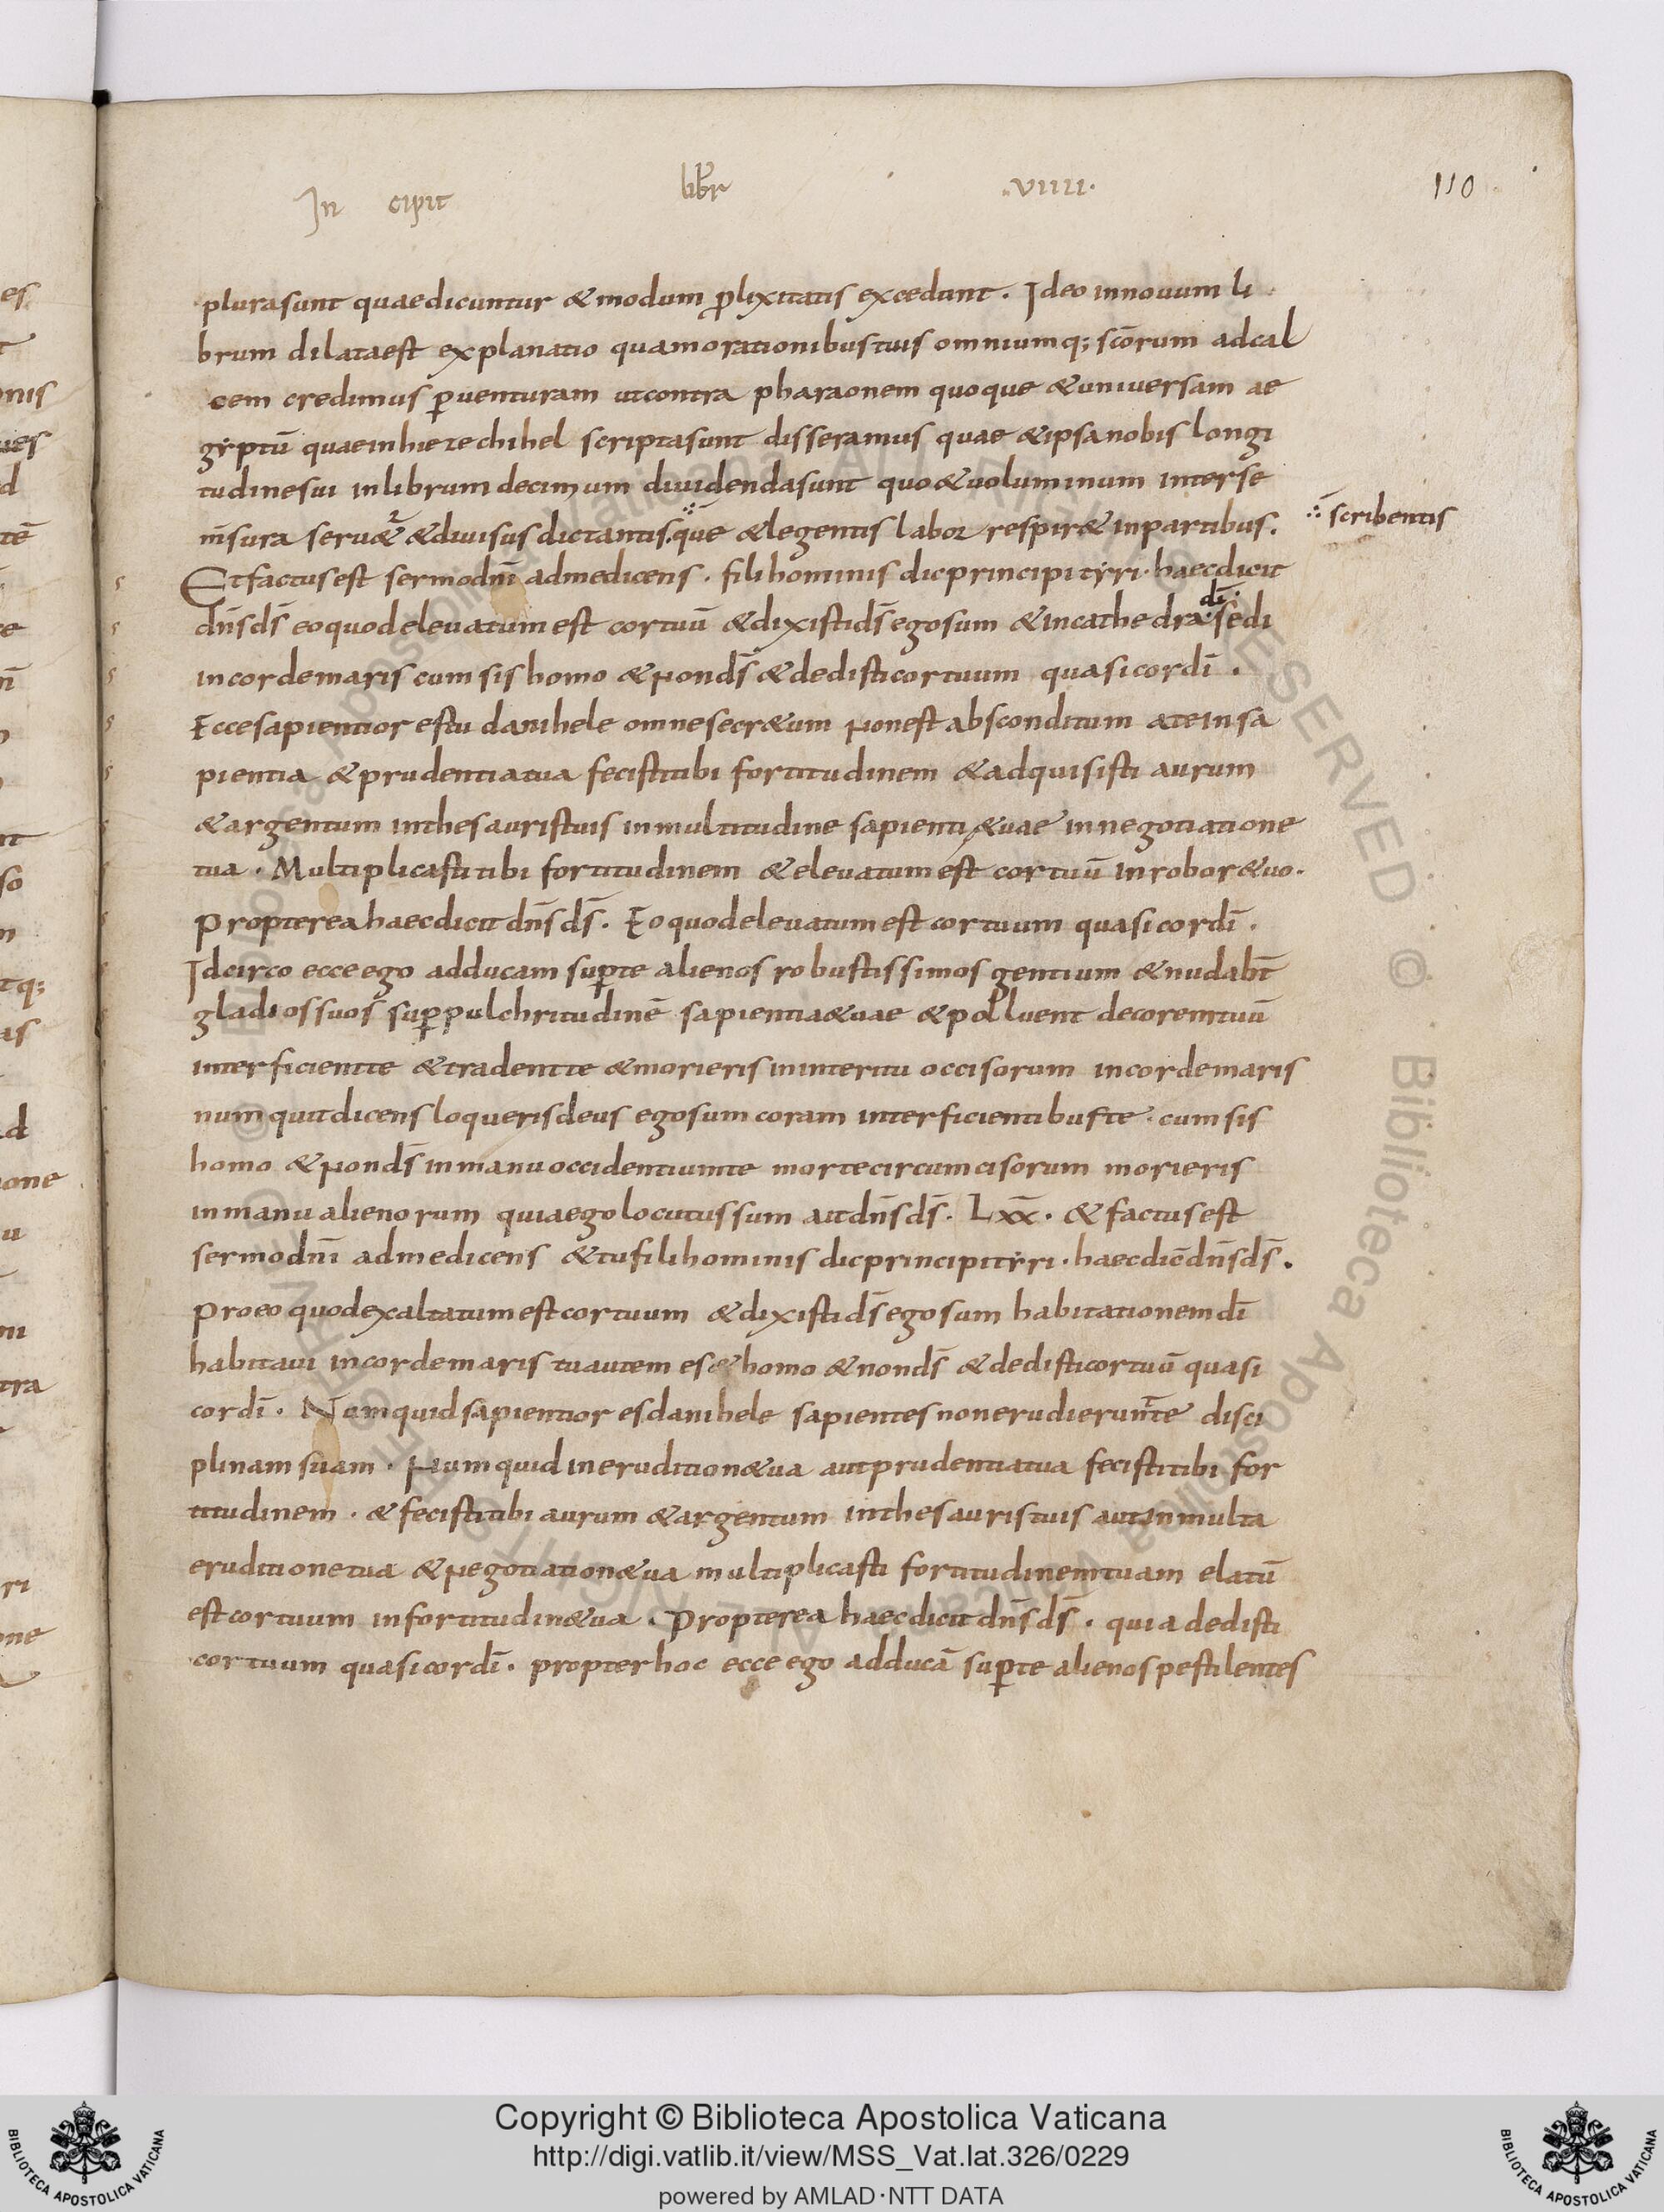 In cipit libr VIIII. 110
plurasunt quaedicuntur &modum ꝓlixitatis excedunt. Ideo innouum li
brum dilataest explanatio quamorationibustuis omniumq; scōrum adcal
cem credimus ꝑuenturam utcontra pharaonem quoque &uniuersam ae
gẏptū quaeinhiezechihel scriptasunt disseramus quae &ipsanobis longi
tudinesui inlibrum decimum diuidendasunt quo&uoluminum interse
m̄sura seru&ur &diuisus dictantis ∴ que &legentis labor respir& inpartibus. ∴ scribentis
Etfactusest sermodn̄i admedicens. fili hominis dicprincipi tẏri. haecdicit
dn̄sds̄ eoquodeleuatumest cortuū &dixistids̄ egosum &incathedra dī sedi
incordemaris cum sis homo &nonds̄ &dedisticortuum quasicordī.
Eccesapientior estu danihele omnesecr&um nonest absconditum ateinsa
pientia &prudentiatua fecistitibi fortitudinem &adquisisti aurum
&argentum inthesauristuis inmultitudine sapienti&uae innegotiatione
tua. Multiplicastitibi fortitudinem &eleuatumest cortuū inrobor&uo.
Propterea haecdicit dn̄sds̄. Eoquodeleuatumest cortuum quasicordī.
Idcirco ecceego adducam suꝑte alienos robustissimos gentium &nudabt̄
gladiossuos suꝑpulchritudinē sapientia&uae &polluent decoremtuū
interficientte &tradentte &morieris ininteritu occisorum incordemaris
numquitdicens loquerisdeus egosum coram interficientibuste. cumsis
homo &nonds̄ inmanuoccidentiumte mortecircumcisorum morieris
inmanu alienorum quiaegolocutussum aitdn̄sds̄. Lxx̄. &factusest
sermodn̄i admedicens &tufilihominis dicprincipitẏri. haecdic̄dn̄sds̄.
Proeo quodexaltatumestcortuum &dixistids̄egosum habitationemdī
habitaui incordemaris tuautem es& homo &nonds̄ &dedisticortuū quasi
cordī. Numquidsapientior esdanihele sapientesnonerudierunt̄te disci
plinamsuam. Numquidinerudition&ua autprudentiatua fecistitibi for
titudinem. &fecistitibi aurum &argentum inthesauristuis autinmulta
eruditionetua &negotiation&ua multiplicasti fortitudinemtuam elatū
estcortuum infortitudin&ua. Propterea haecdicit dn̄sds̄. quiadedisti
cortuum quasicordī. propterhoc ecceego adducā suꝑte alienospestilentes
Copyright © Biblioteca Apostolica Vaticana
http://digi.vatlib.it/view/MSS_Vat.lat.326/0229
powered by AMLAD·NTT DATA